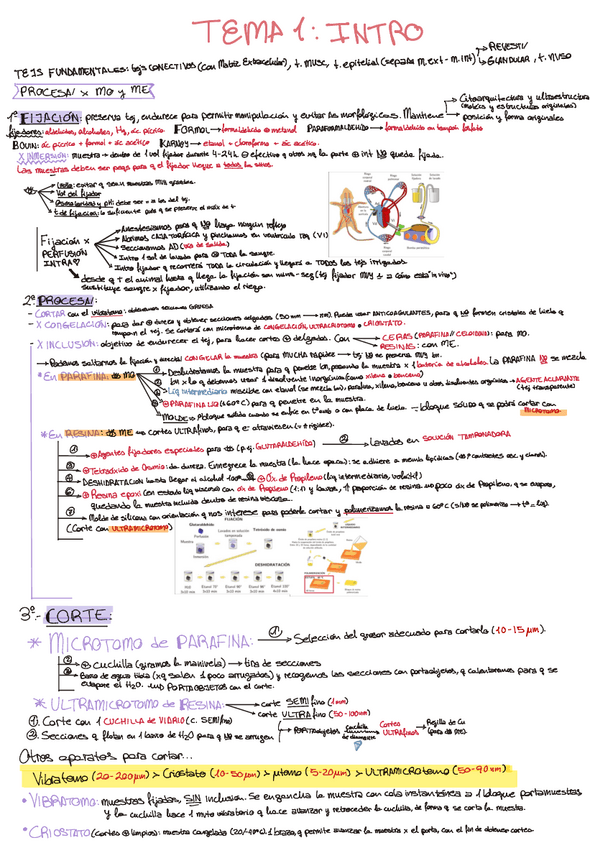 TEMA 1: INTRO
TEJS FUNDAMENTALES: tejs CONECTIVOS (con Matriz Extracelular), t. musc, t. epitelial (separa m.ext - m.int) → REVESTI/
→ GLANDULAR, t. NVSO
PROCESA/ x MO y ME
1º FIJACIÓN: preserva tej, endurece para permitir manipulación y evitar Δs morfológicas. Mantiene → Citoarquitectura y ultraestructura
(motivos y estructuras originales)
→ posición y forma originales
fijadores: aldehidos, alcoholes, Hg, ác. pícrico. FORMOL → formaldehido ⊕ metanol PARAFORMALDEHIDO → formaldehido en tampón fosfato
BOUIN: ác. pícrico + formol + ác. acético KARNOY → etanol + cloroformo + ác. acético.
X INMERSIÓN: muestra → dentro de 1 vol fijador durante 4-24h ⊕ efectivo q otros xq la parte ⊕ int NO queda fijada.
Las muestras deben ser peqs para q el fijador llegue a todas las zonas.
Vol del fijador
Osmolaridad y pH: debe ser = a los del tej.
t de fijación: lo suficiente para q se preserve el
Fijación x
PERFUSIÓN
INTRAV
Anestesiamos para q NO haya ningún reflejo
Abrimos CAJA TORÁCICA y pinchamos en ventrículo izq (VI)
Seccionamos AD (vía de salida)
Intro 1 sol de lavado para ⊖ TODA la sangre.
Intro fijador q recorrerá TODA la circulación y llegará a TODOS los tejs irrigados.
desde q t el animal hasta q llega la fijación son mins-seg (tej fijador MUY = a cómo está "in vivo")
sustituye sangre x fijador, utilizando el riego.
2º PROCESA/:
- CORTAR con el vibratomo: obtenemos secciones GRUESA
- X CONGELACIÓN: para dar ⊕ dureza y obtener secciones delgadas (50 nm → nm). Puede usar ANTICOAGULANTES, para q NO formen cristales de hielo q
rompan el tej. Se cortará con microtomo de CONGELACIÓN, ULTRACRIOTOMO o CRIOSTATO.
- X INCLUSIÓN: objetivo de endurecer el tej, para hacer cortes ⊕ delgados. Con → CERAS (PARAFINA // CELOIDINA): para MO.
→ RESINAS: con ME.
→ Podemos saltarnos la fijación y directa/ CONGELAR la muestra (para MUCHA rapidez → tej NO se preserva MUY bn.
* En PARAFINA: MO
Deshidratamos la muestra para q penetre bn, pasando la muestra x 1 batería de alcoholes. La PARAFINA NO se mezcla
bn x lo q debemos usar 1 disolvente inorgánico (como xileno o benceno)
Líq intermediario miscible con etanol (se mezcla bn), parafina, xileno, benceno u otros disolventes orgánicos → AGENTE ACLARANTE
(tej transparente)
⊕ PARAFINA LÍQ (≈60ºC) para q penetre en la muestra.
MOLDE → 1 bloque sólido cuando se enfríe en tº amb o con placa de hielo → bloque sólido q se podrá cortar con
MICROTOMO
* En RESINA: ME → cortes ULTRAfinos, para q e- atraviesen (↓ e rigidez).
① ⊕ Agentes fijadores especiales para (p.ej. GLUTARALDEHIDO) ② → Lavados en SOLUCIÓN TAMPONADORA
③ ⊕ Tetraóxido de Osmio: da dureza. Ennegrece la muestra (la hace opaca): se adhiere a membs lipídicas
④ DESHIDRATACIÓN hasta llegar al alcohol 100% ⊕ Óx de Propileno (líq intermediario, volátil)
⑤ ⊕ Resina epoxi (en estado líq viscoso) con óx de Propileno (1:1) y luego, ↑ proporción de resina. un poco óx de Propileno q se evapora,
quedando la muestra incluida dentro de resina viscosa.
Molde de silicona con orientación q nos interese para poderla cortar y polimerizamos la resina a 60ºC
(Cortar con ULTRAMICROTOMO)
FIJACIÓN
Glutaraldehído
Perfusión
Muestra
Inmersión
Lavados en solución tamponada
Tetróxido de osmio
DESHIDRATACIÓN
3º- CORTE:
* MICROTOMO de PARAFINA: ① → Selección del grosor adecuado para cortarlo (10-15 µm).
② ⊕ cuchilla (giramos la manivela) → tira de secciones
③ Baño de agua tibia (xq salen 1 poco arrugadas) y recogemos las secciones con portaobjetos, q calentaremos para q se
evapore el H₂O. → PORTAOBJETOS con el corte.
* ULTRAMICROTOMO de RESINA: → corte SEMIfino (1 µm)
→ corte ULTRAfino (50-100 nm)
①. Corte con 1 CUCHILLA de VIDRIO (C. SEMIfino)
②. Secciones q flotan en 1 baño de H₂O para q NO se arruguen → PORTAobjetos Cuchilla de diamante → Cortes ULTRAfinos → Rejilla de Cu
(para ME).
Otros aparatos para cortar...
Vibratomo (20-200µm) > Criostato (10-50µm) > µtomo (5-20µm) > ULTRAMICROTOMO (50-90 nm)
• VIBRATOMO: muestras fijadas, SIN inclusión. Se engancha la muestra con cola instantánea a 1 bloque portamuestras
y la cuchilla hace 1 mvto vibratorio q hace avanzar y retroceder la cuchilla, de forma q se corta la muestra.
• CRIOSTATO (cortes ⊕ limpios): muestra congelada (20/-40ºC) 1 brazo, q permite avanzar la muestra x el porta, con el fin de obtener cortes